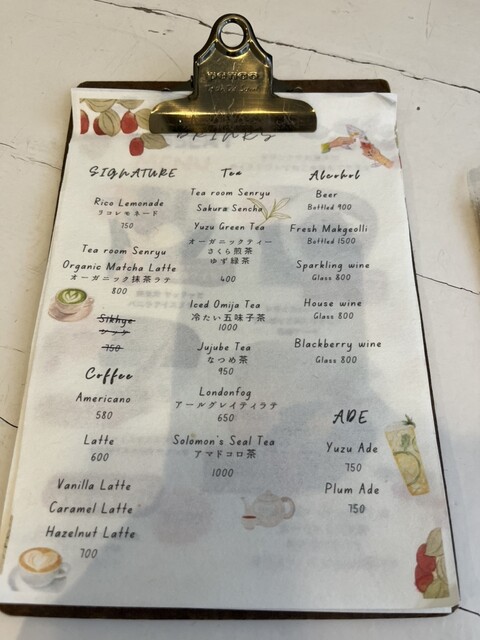 DRINKS
SIGNATURE
Rico Lemonade
リコレモネード
750
Tea room Senryu
Organic Matcha Latte
オーガニック抹茶ラテ
800
Sikhye
シッケ
750
Coffee
Americano
580
Latte
600
Vanilla Latte
Caramel Latte
Hazelnut Latte
700
Tea
Tea room Senryu
Sakura Sencha
Yuzu Green Tea
オーガニックティー
さくら煎茶
ゆず緑茶
400
Iced Omija Tea
冷たい五味子茶
1000
Jujube Tea
なつめ茶
950
Londonfog
アールグレイティラテ
650
Solomon's Seal Tea
アマドコロ茶
1000
Alcohol
Beer
Bottled 900
Fresh Makgeolli
Bottled 1500
Sparkling wine
Glass 800
House wine
Glass 800
Blackberry wine
Glass 800
ADE
Yuzu Ade
750
Plum Ade
750